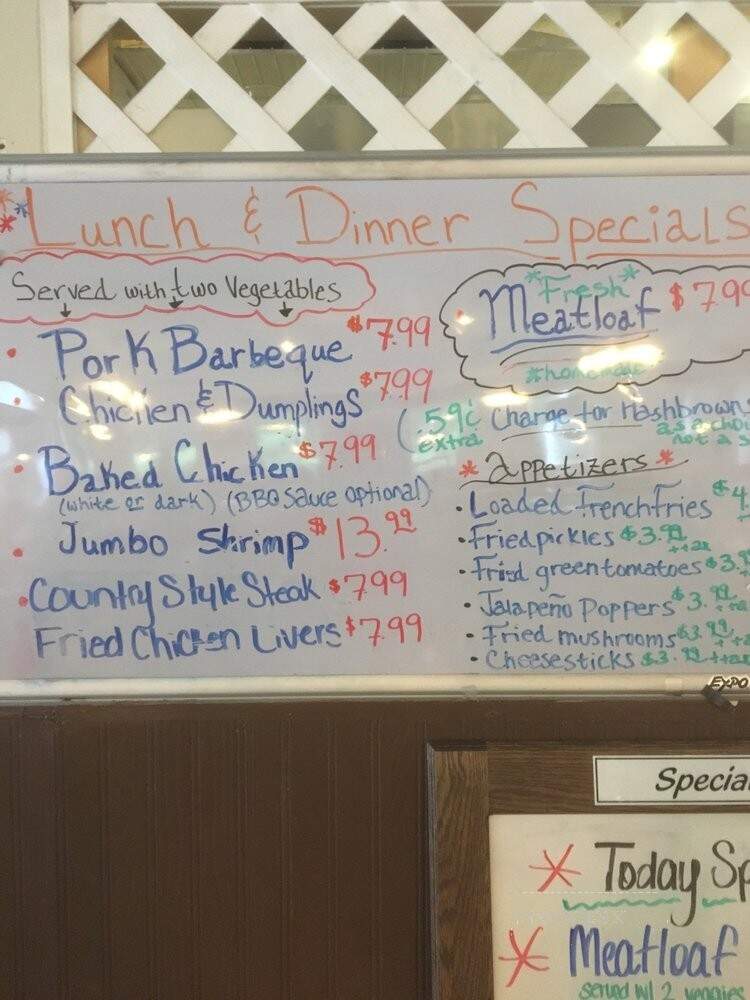 Lunch & Dinner Specials
Served with two Vegetables
Pork Barbeque $7.99
Chicken & Dumplings $7.99
Baked Chicken $7.99
(white or dark) (BBQ Sauce optional)
Jumbo Shrimp $13.99
Country Style Steak $7.99
Fried Chicken Livers $7.99
Fresh
Meatloaf $7.99
homemade
(.59¢ Charge for Hashbrowns
extra as a choi
not a s
Appetizers
Loaded frenchfries $4.
Fried pickles $3.99
+tax
Fried green tomatoes $3.9
Jalapeño Poppers $3.99
Fried mushrooms $3.99
Cheesesticks $3.99 +tax
EXPO
Special
Today Sp
Meatloaf
served w/ 2 veggies